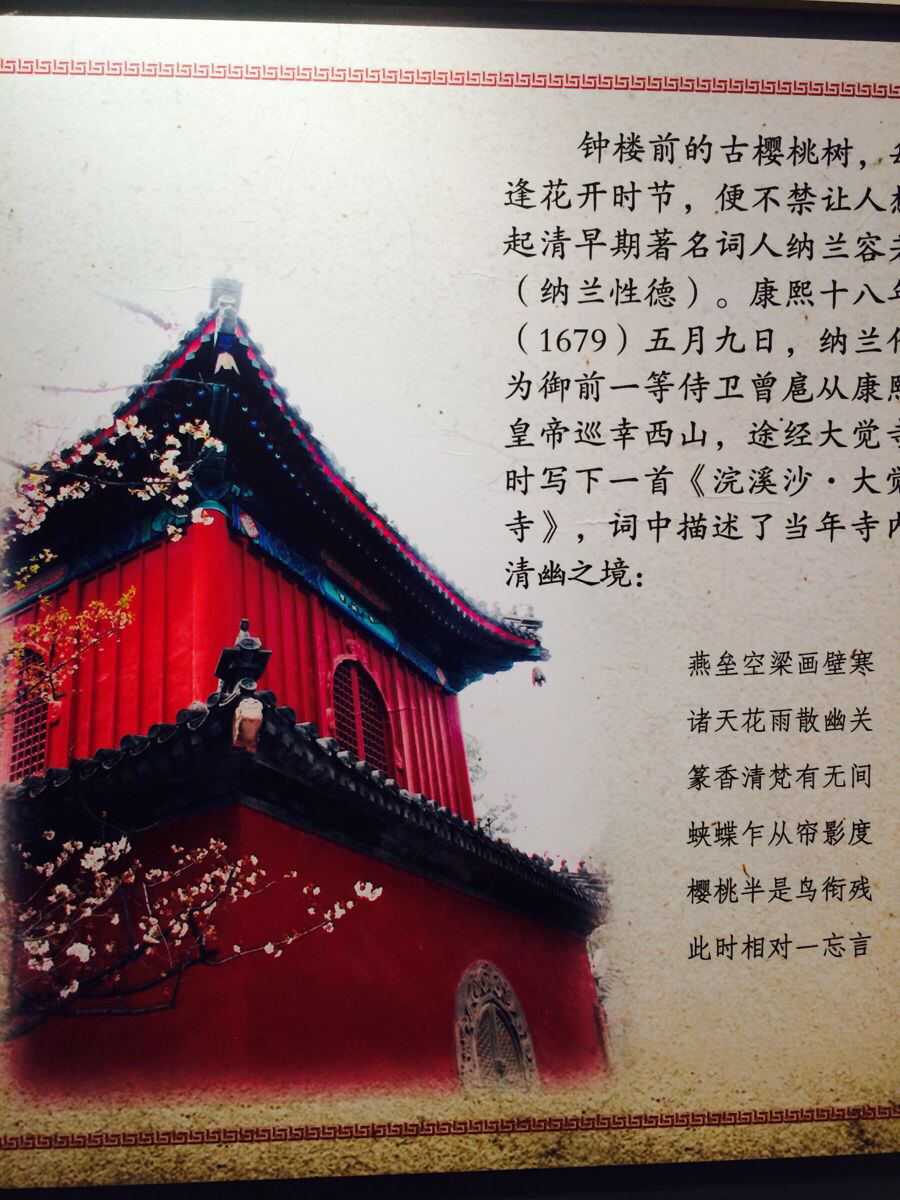 钟楼前的古樱桃树，每
逢花开时节，便不禁让人想
起清早期著名词人纳兰容若
（纳兰性德）。康熙十八年
（1679）五月九日，纳兰作
为御前一等侍卫曾扈从康熙
皇帝巡幸西山，途经大觉寺
时写下一首《浣溪沙·大觉
寺》，词中描述了当年寺内
清幽之境：
燕垒空梁画壁寒
诸天花雨散幽关
篆香清梵有无间
蛱蝶乍从帘影度
樱桃半是鸟衔残
此时相对一忘言